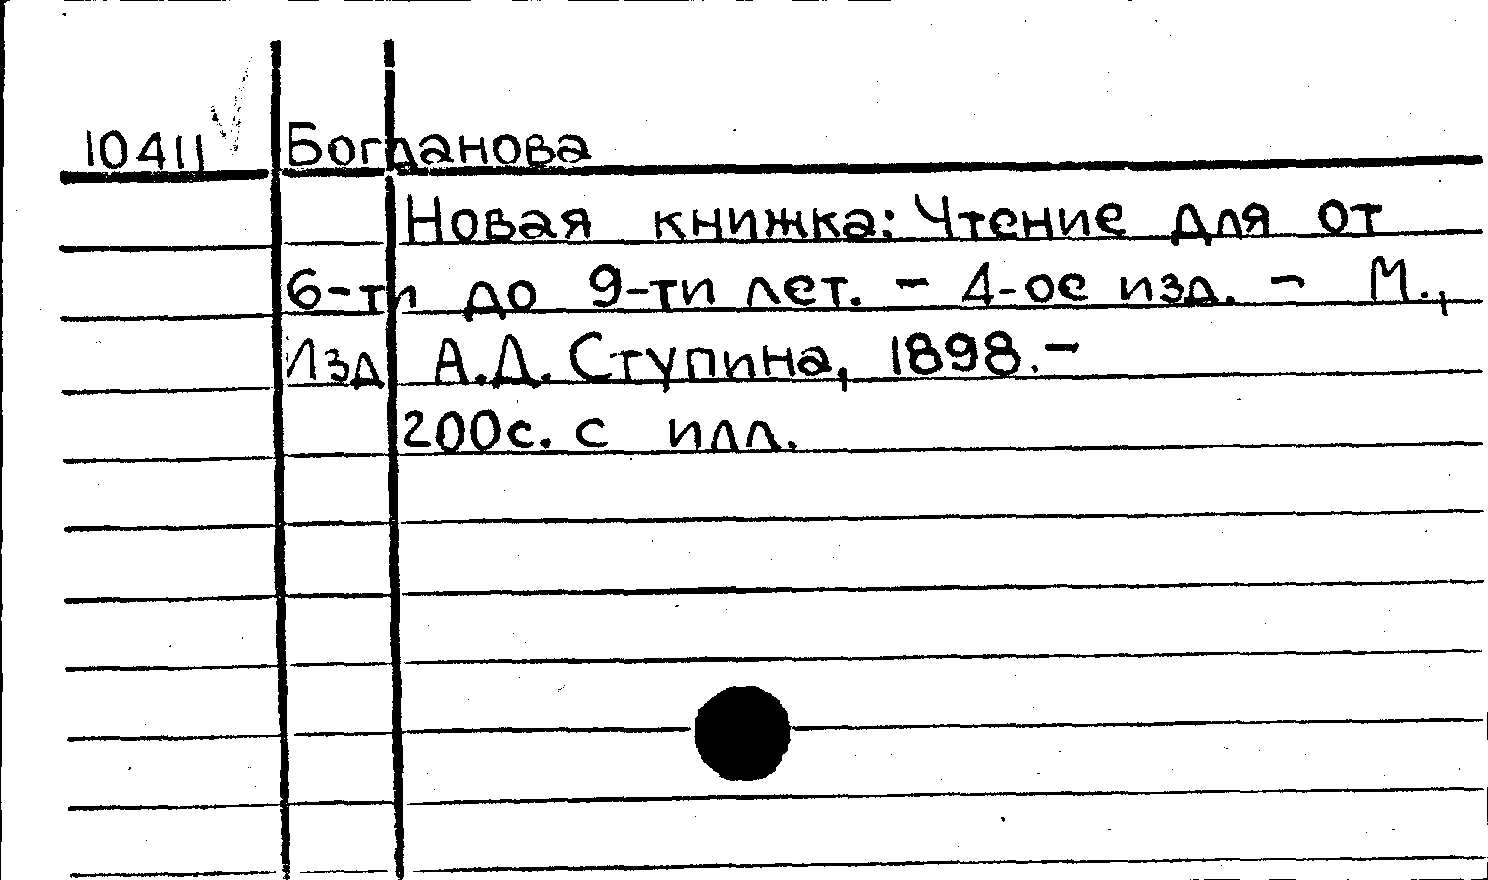 10411 Богданова
Новая книжка: Чтение для от
6-ти до 9-ти лет. - 4-ое изд. - М.,
Изд А.Д. Ступина, 1898. -
200с. с илл.